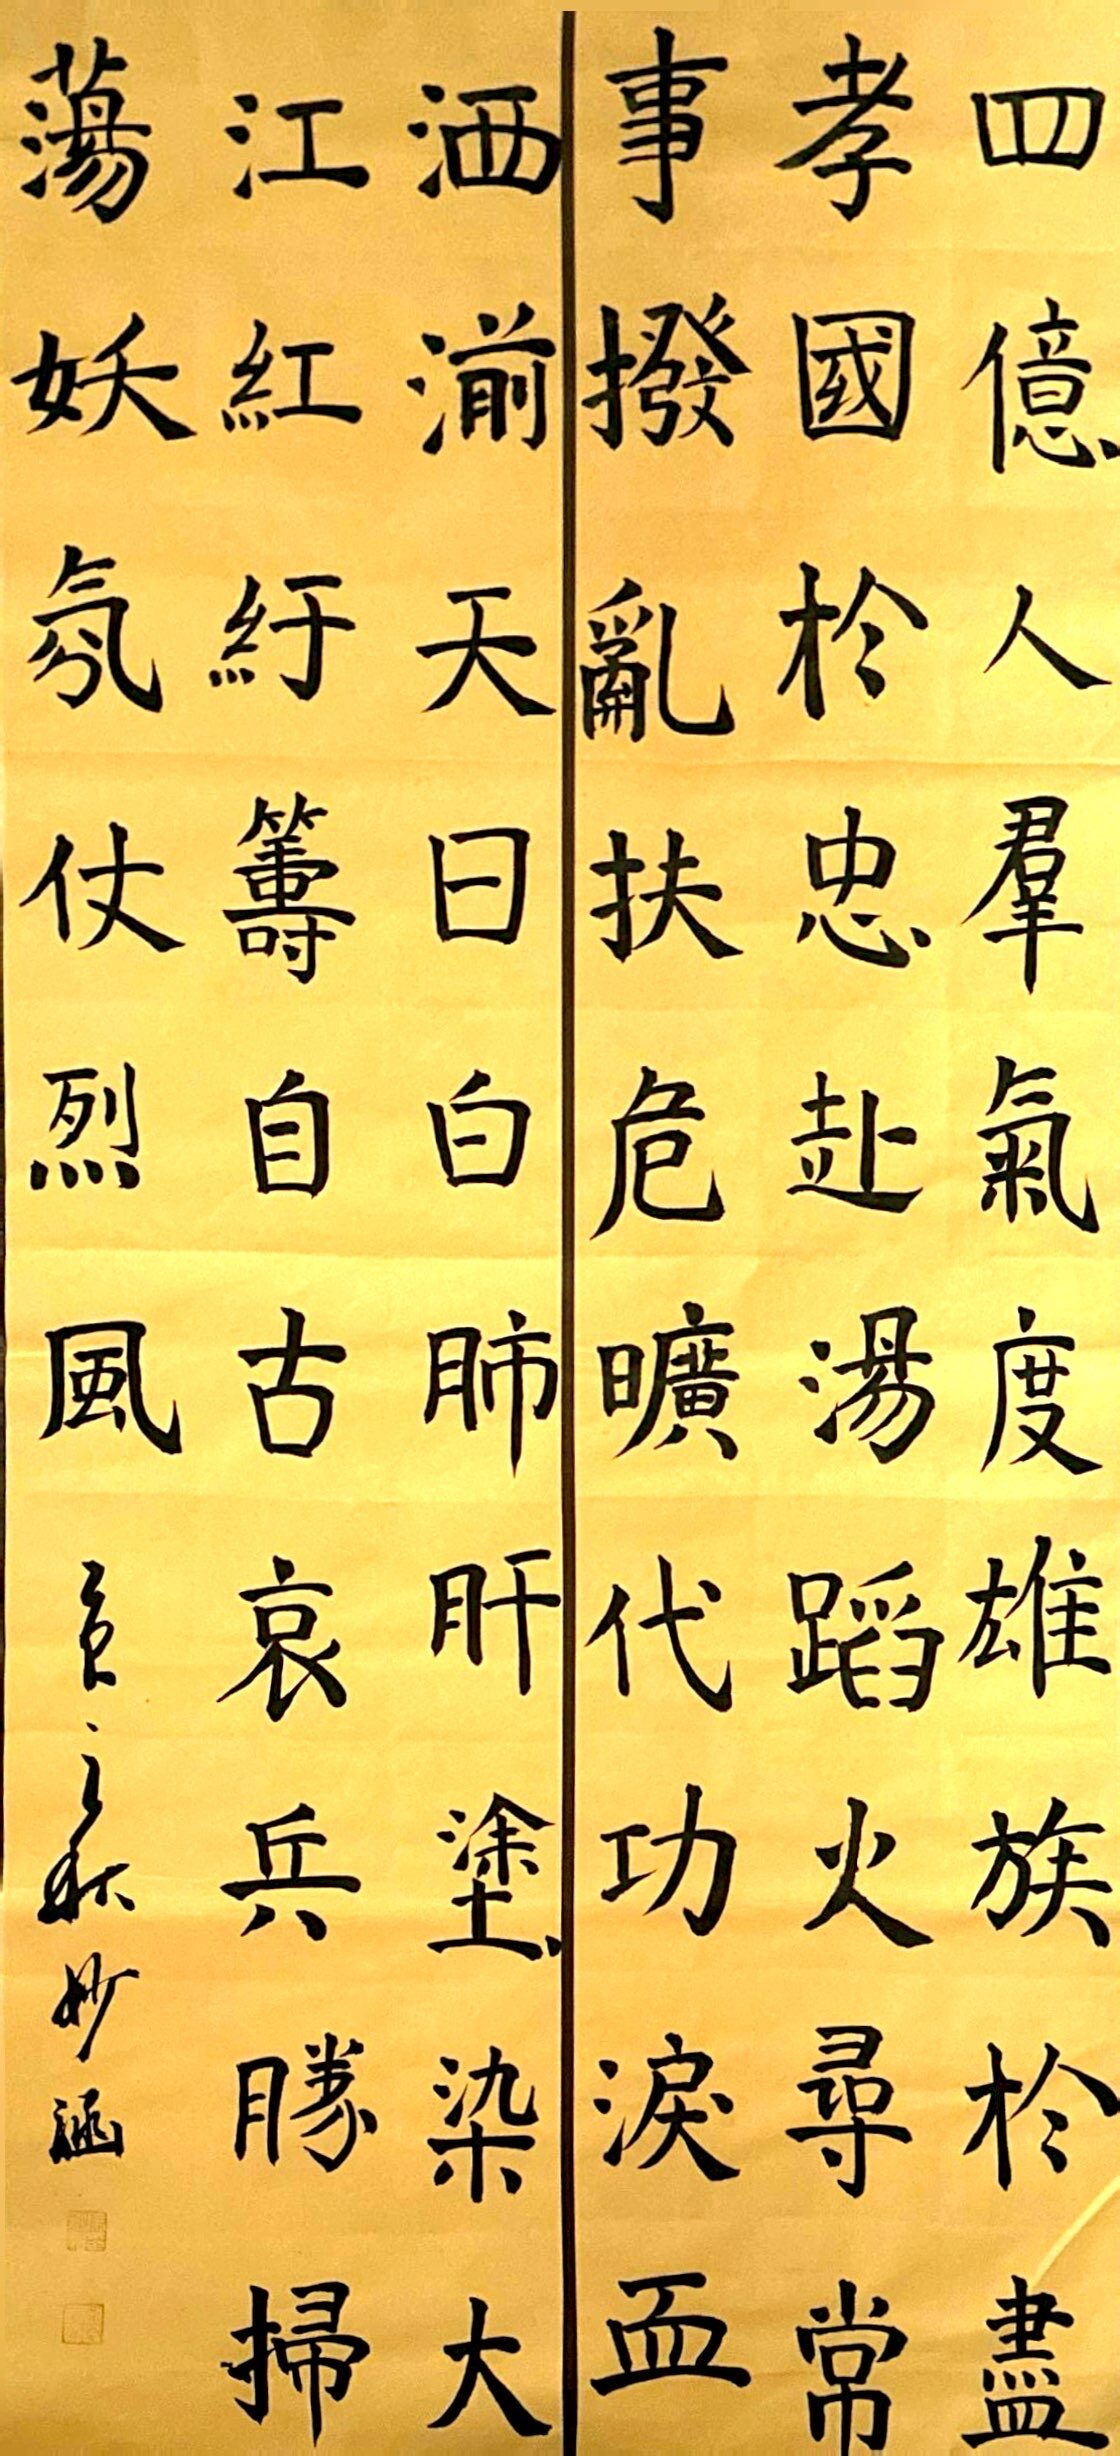 四億人羣氣度雄族於盡
孝國於忠赴湯蹈火尋常
事撥亂扶危曠代功淚血
洒湔天日白肺肝塗染大
江紅紆籌自古哀兵勝掃
蕩妖氛仗烈風
之秋妙涵